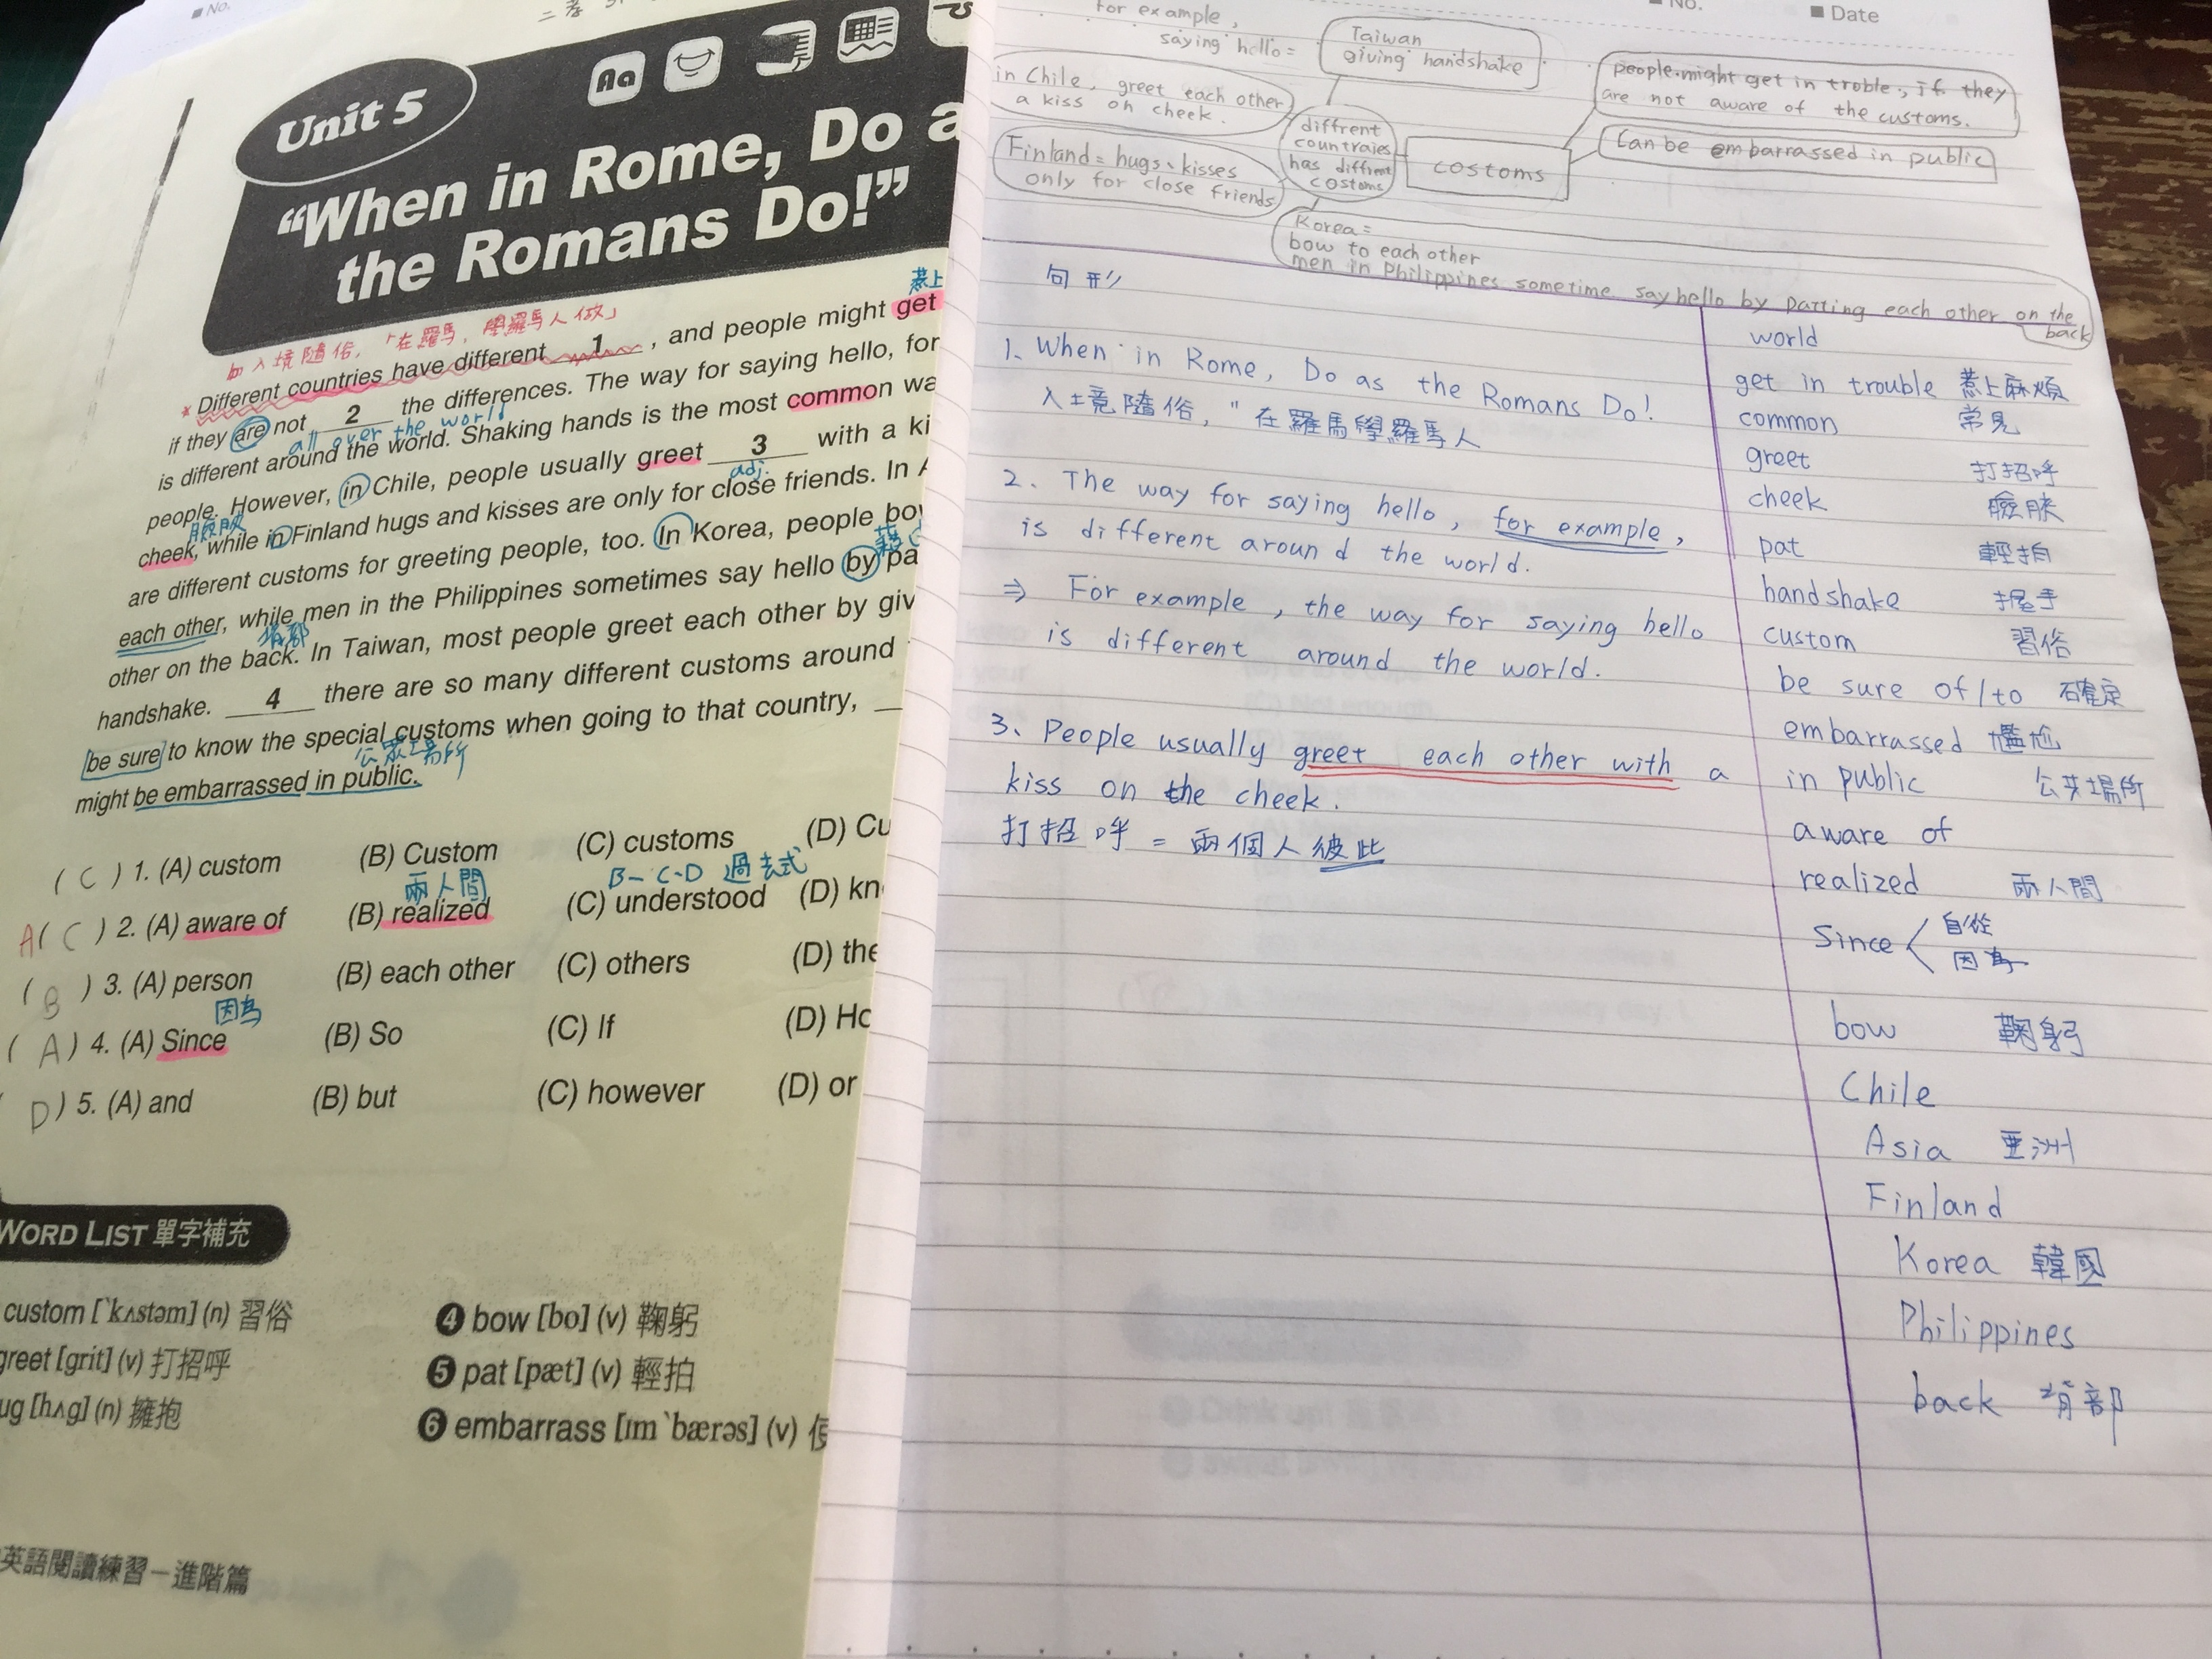 ■ No.
二孝
Unit 5
Aa
"When in Rome, Do a
the Romans Do!"
入境隨俗,「在羅馬,學羅馬人做」
惹上
* Different countries have different 1 , and people might get
if they are not 2 the differences. The way for saying hello, for
all over the world
is different around the world. Shaking hands is the most common wa
people. However, in Chile, people usually greet 3 with a ki
adj.
臉頰
cheek, while in Finland hugs and kisses are only for close friends. In A
are different customs for greeting people, too. In Korea, people bow
each other, while men in the Philippines sometimes say hello by pa
背部
other on the back. In Taiwan, most people greet each other by giv
handshake. 4 there are so many different customs around
be sure to know the special customs when going to that country,
公眾場所
might be embarrassed in public.
( C ) 1. (A) custom (B) Custom (C) customs (D) Cu
兩人間 B-C-D 過去式
A( C ) 2. (A) aware of (B) realized (C) understood (D) kn
( B ) 3. (A) person (B) each other (C) others (D) the
因為
( A ) 4. (A) Since (B) So (C) If (D) Ho
D ) 5. (A) and (B) but (C) however (D) or
WORD LIST 單字補充
custom [ˋkʌstəm] (n) 習俗
greet [grit] (v) 打招呼
ug [hʌg] (n) 擁抱
4 bow [bo] (v) 鞠躬
5 pat [pæt] (v) 輕拍
6 embarrass [ɪmˋbærəs] (v) 使
英語閱讀練習－進階篇
■ No.
■ Date
for example,
saying hello =
Taiwan
giving handshake
in Chile, greet each other
a kiss on cheek.
Finland = hugs、kisses
only for close friends
diffrent
countraies
has diffrent
costoms
costoms
people might get in troble, if they
are not aware of the customs.
Can be embarrassed in public
Korea =
bow to each other
men in Philippines sometime say hello by patting each other on the
back
句形
1、When in Rome, Do as the Romans Do!
入境隨俗, "在羅馬學羅馬人
2. The way for saying hello, for example,
is different around the world.
⇒ For example, the way for saying hello
is different around the world.
3、People usually greet each other with a
kiss on the cheek.
打招呼 = 兩個人彼此
world
get in trouble 惹上麻煩
common 常見
greet 打招呼
cheek 臉頰
pat 輕拍
handshake 握手
custom 習俗
be sure of/to 確定
embarrassed 尷尬
in public 公共場所
aware of
realized 兩人間
Since < 自從
因為
bow 鞠躬
Chile
Asia 亞洲
Finland
Korea 韓國
Philippines
back 背部